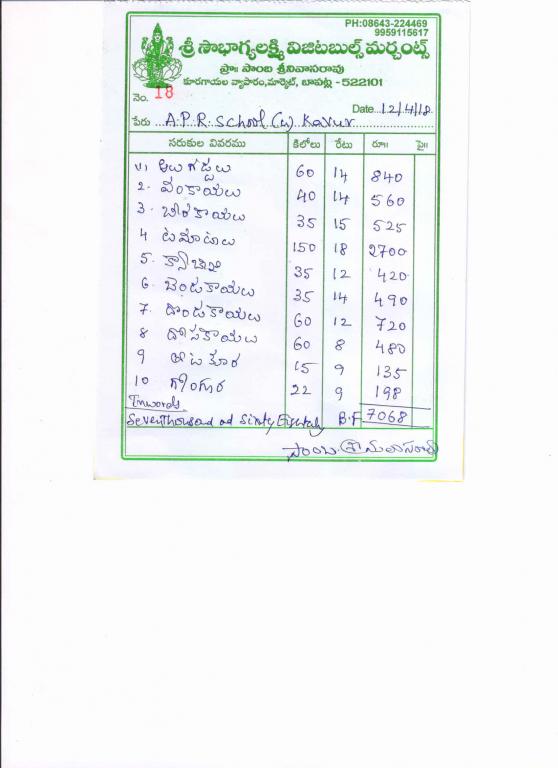 PH:08643-224469
9959115617
శ్రీ సౌభాగ్యలక్ష్మి విజిటబుల్స్ మర్చంట్స్
ప్రొ॥ సాంబ శ్రీనివాసరావు
కూరగాయల వ్యాపారం, మార్కెట్, బాపట్ల - 522101
నెం. 18
Date 12/4/18
పేరు A.P.R. School (u) Kavur
సరుకుల వివరము కిలోలు రేటు రూ॥ పై॥
1) ఆలుగడ్డలు 60 14 840
2. వంకాయలు 40 14 560
3. బీరకాయలు 35 15 525
4 టమోటాలు 150 18 2700
5. క్యాబేజి 35 12 420
6. బెండకాయలు 35 14 490
7. దొండకాయలు 60 12 720
8 దోసకాయలు 60 8 480
9 తోటకూర 15 9 135
10 గోంగూర 22 9 198
Inwords
Seven Thousand ad Sixty Eight B.F 7068
సాంబ శ్రీనివాసరావు